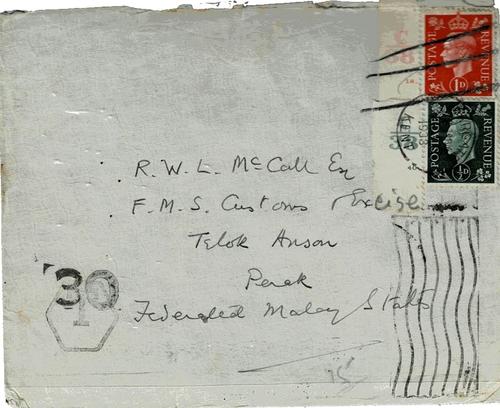 C
38
POSTAGE REVENUE
1D
KENT
1938
POSTAGE REVENUE
½D
R. W. L. McCall Esq
F. M. S. Customs & Excise
Telok Anson
Perak
Federated Malay States
30
1
15